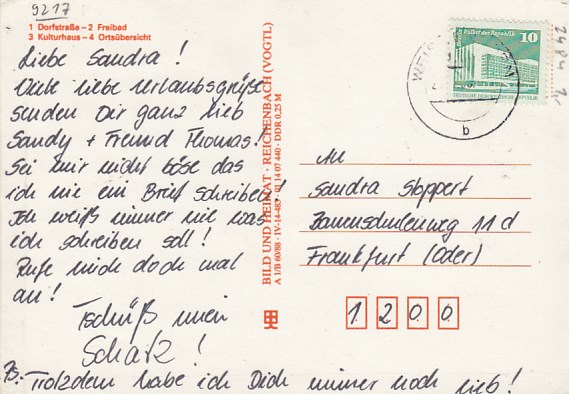 9217
1 Dorfstraße – 2 Freibad
3 Kulturhaus – 4 Ortsübersicht
Liebe Sandra !
Viele liebe Urlaubsgrüße
senden Dir ganz lieb
Sandy + Freund Thomas!
Sei mir nicht böse das
ich nie ein Brief schreibe!
Ich weiß immer nie was
ich schreiben soll!
Rufe mich doch mal
an!
Tschüß mein
Schatz !
PS: Trotzdem habe ich Dich immer noch lieb!
BILD UND HEIMAT · REICHENBACH (VOGTL)
A 1/B 60/88 · IV-14-483 · 01 14 07 440 · DDR 0,25 M
Palast der Republik 10
DEUTSCHE DEMOKRATISCHE REPUBLIK
b
An
Sandra
Baumschulenweg 11 d
Frankfurt (Oder)
1 2 0 0